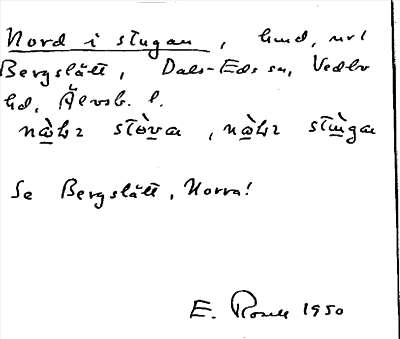 Nord i stugan, hmd, nr 1
Bergslätt, Dals-Eds sn, Vedbo
hd, Älvsb. l.
stòva, stùga
Se Bergslätt, Norra!
E. Rosell 1950